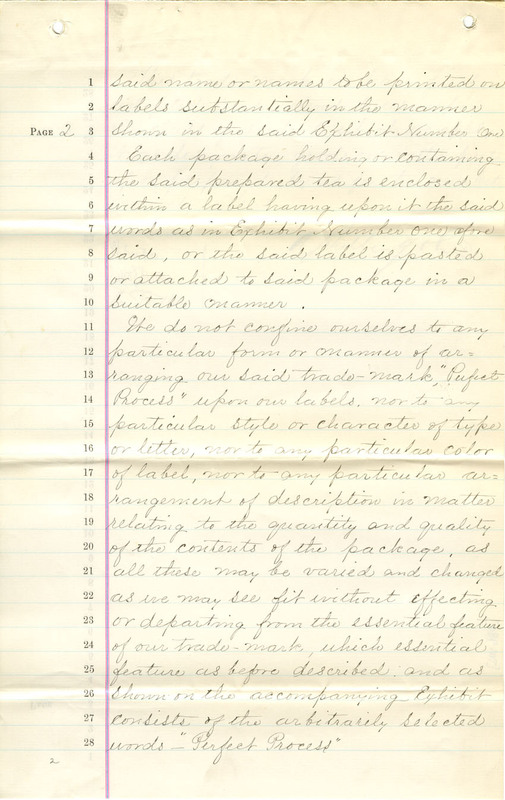 1 said name or names to be printed on
2 labels substantially in the manner
PAGE 2 3 shown in the said Exhibit Number One
4 Each package holding or containing
5 the said prepared tea is enclosed
6 within a label having upon it the said
7 words as in Exhibit Number One afore
8 said, or the said label is pasted
9 or attached to said package in a
10 suitable manner.
11 We do not confine ourselves to any
12 particular form or manner of ar=
13 ranging our said trade-mark, "Perfect
14 Process" upon our labels. nor to any
15 particular style or character of type
16 or letter, nor to any particular color
17 of label, nor to any particular ar=
18 rangement of description in matter
19 relating to the quantity and quality
20 of the contents of the package, as
21 all these may be varied and changed
22 as we may see fit without effecting
23 or departing from the essential feature
24 of our trade-mark, which essential
25 feature as before described and as
26 shown on the accompanying Exhibit
27 consists of the arbitrarily selected
28 words - "Perfect Process"
2